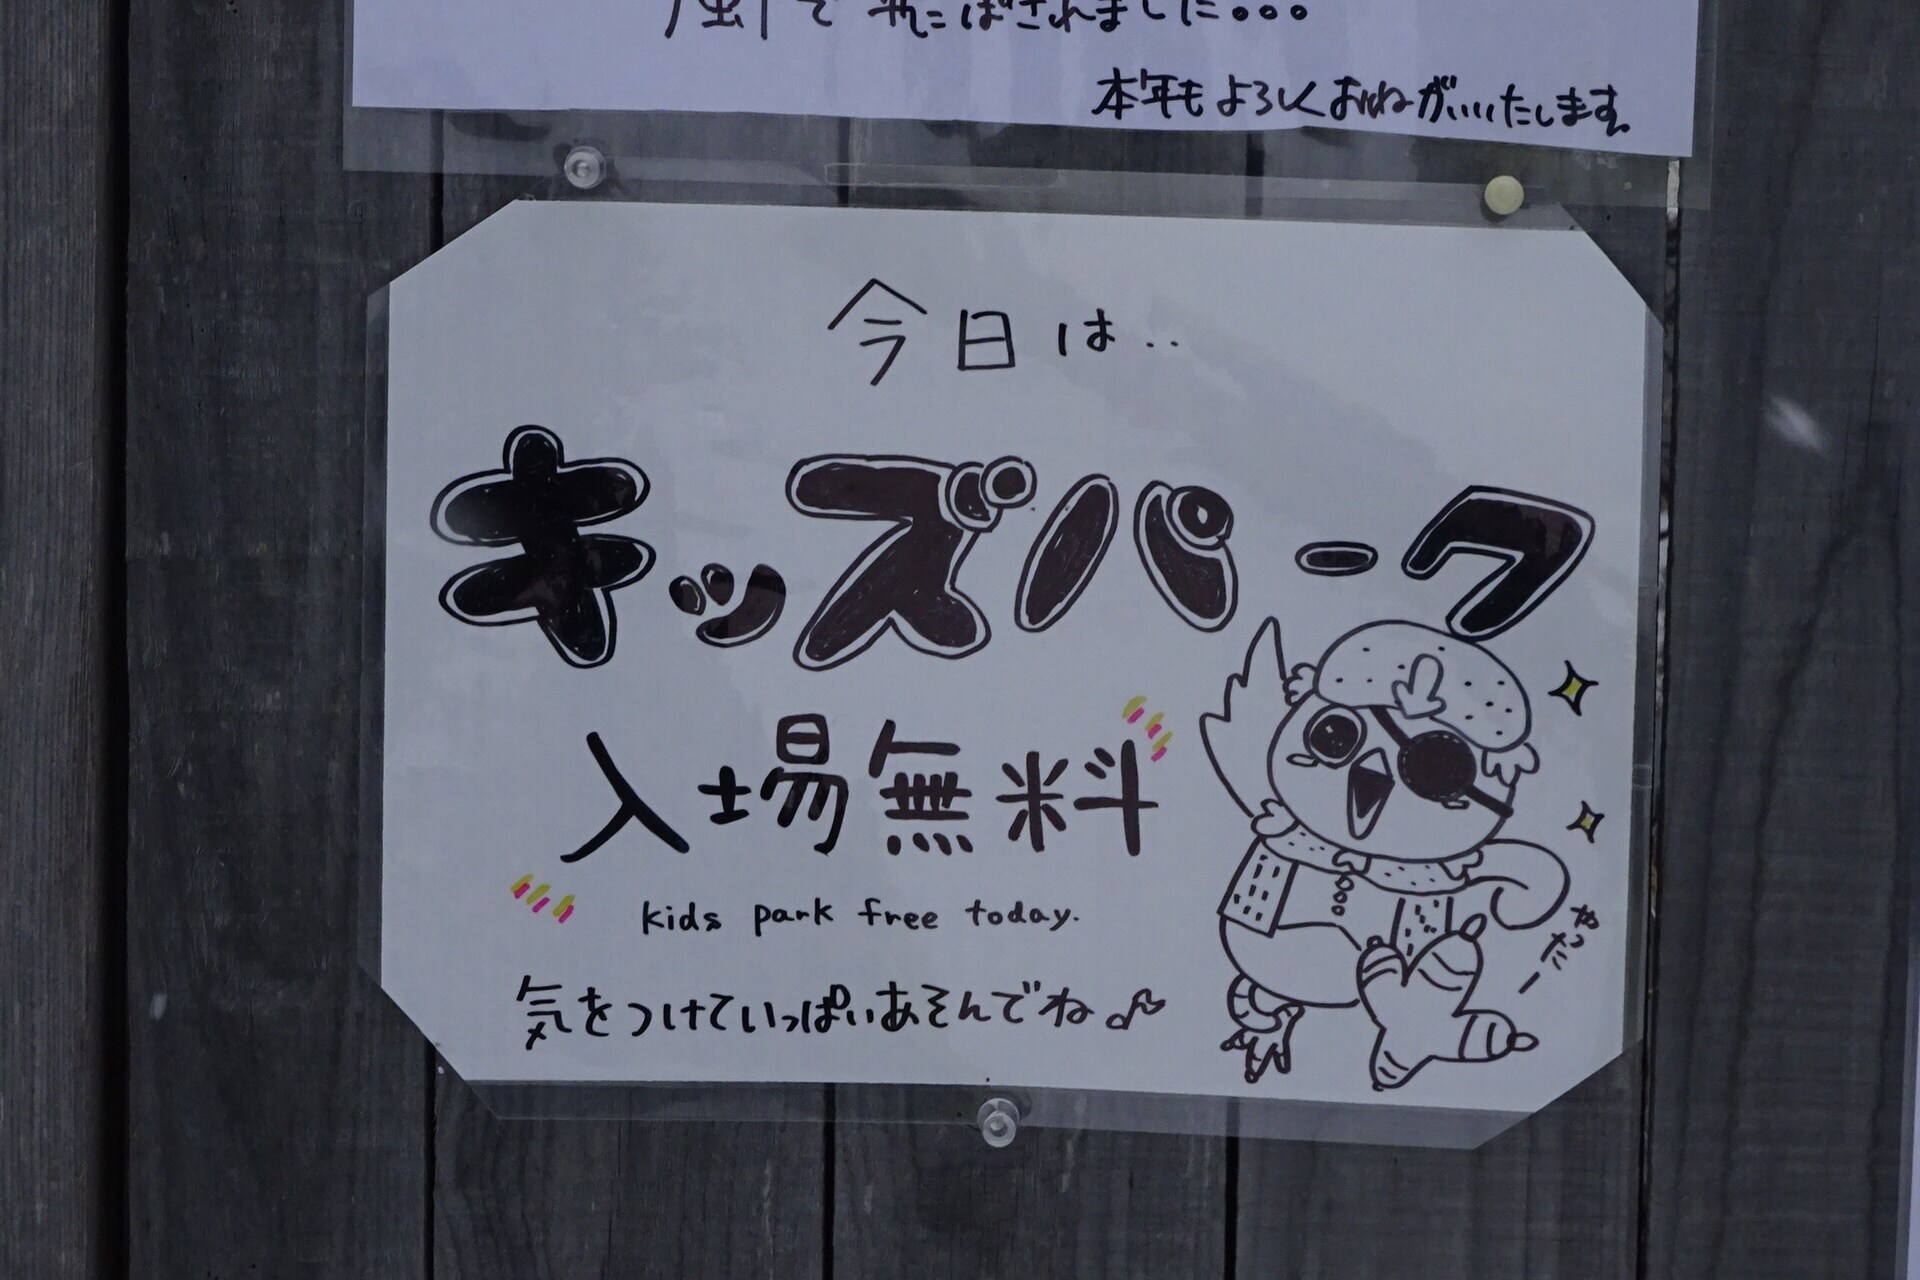 で飛ばされました...
本年もよろしくおねがいいたします。
今日は..
キッズパーク
入場無料
kids park free today.
気をつけていっぱいあそんでね♪
やったー